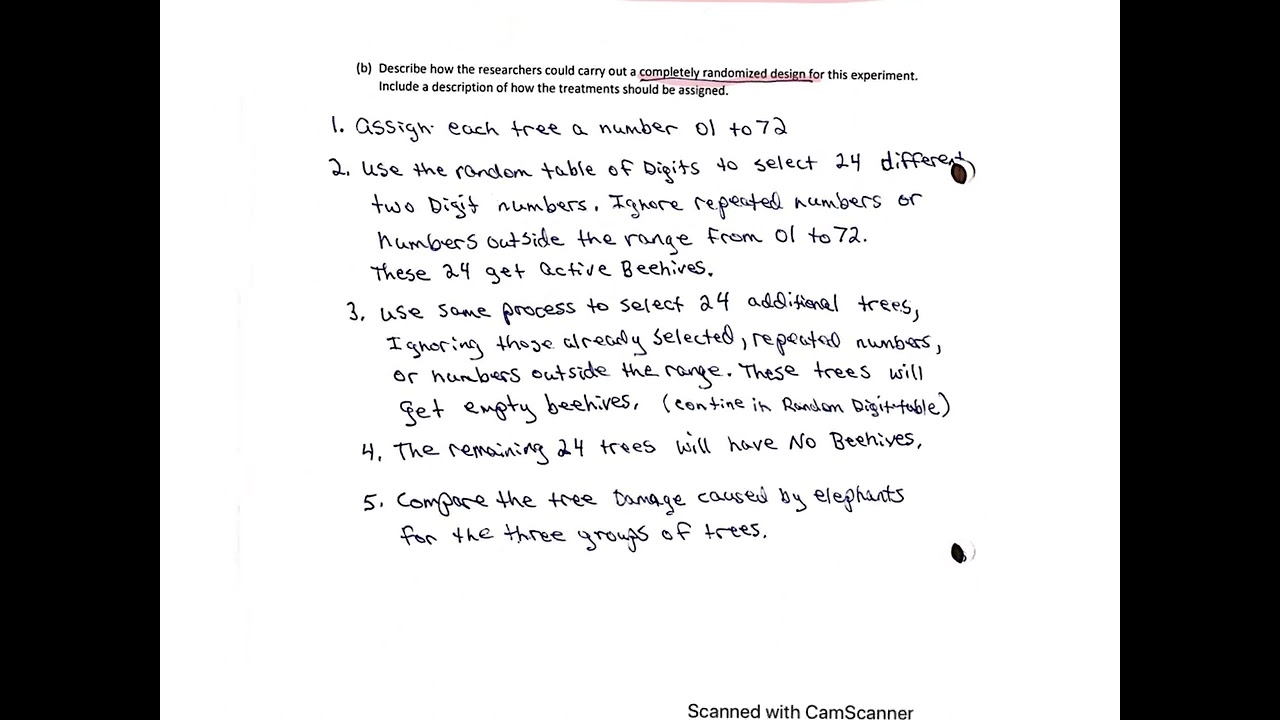 (b) Describe how the researchers could carry out a completely randomized design for this experiment.
Include a description of how the treatments should be assigned.
1. Assign each tree a number 01 to 72
2. Use the random table of Digits to select 24 different
two Digit numbers. Ignore repeated numbers or
numbers outside the range from 01 to 72.
These 24 get active Beehives.
3. Use same process to select 24 additional trees,
Ignoring those already selected, repeated numbers,
or numbers outside the range. These trees will
get empty beehives. (contine in Random Digit table)
4. The remaining 24 trees will have No Beehives.
5. Compare the tree Damage caused by elephants
for the three groups of trees.
Scanned with CamScanner